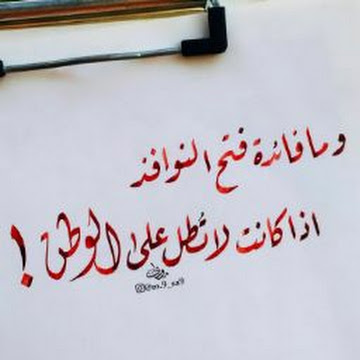 وما فائدة فتح النوافذ
اذا كانت لا تُطل على الوطن !